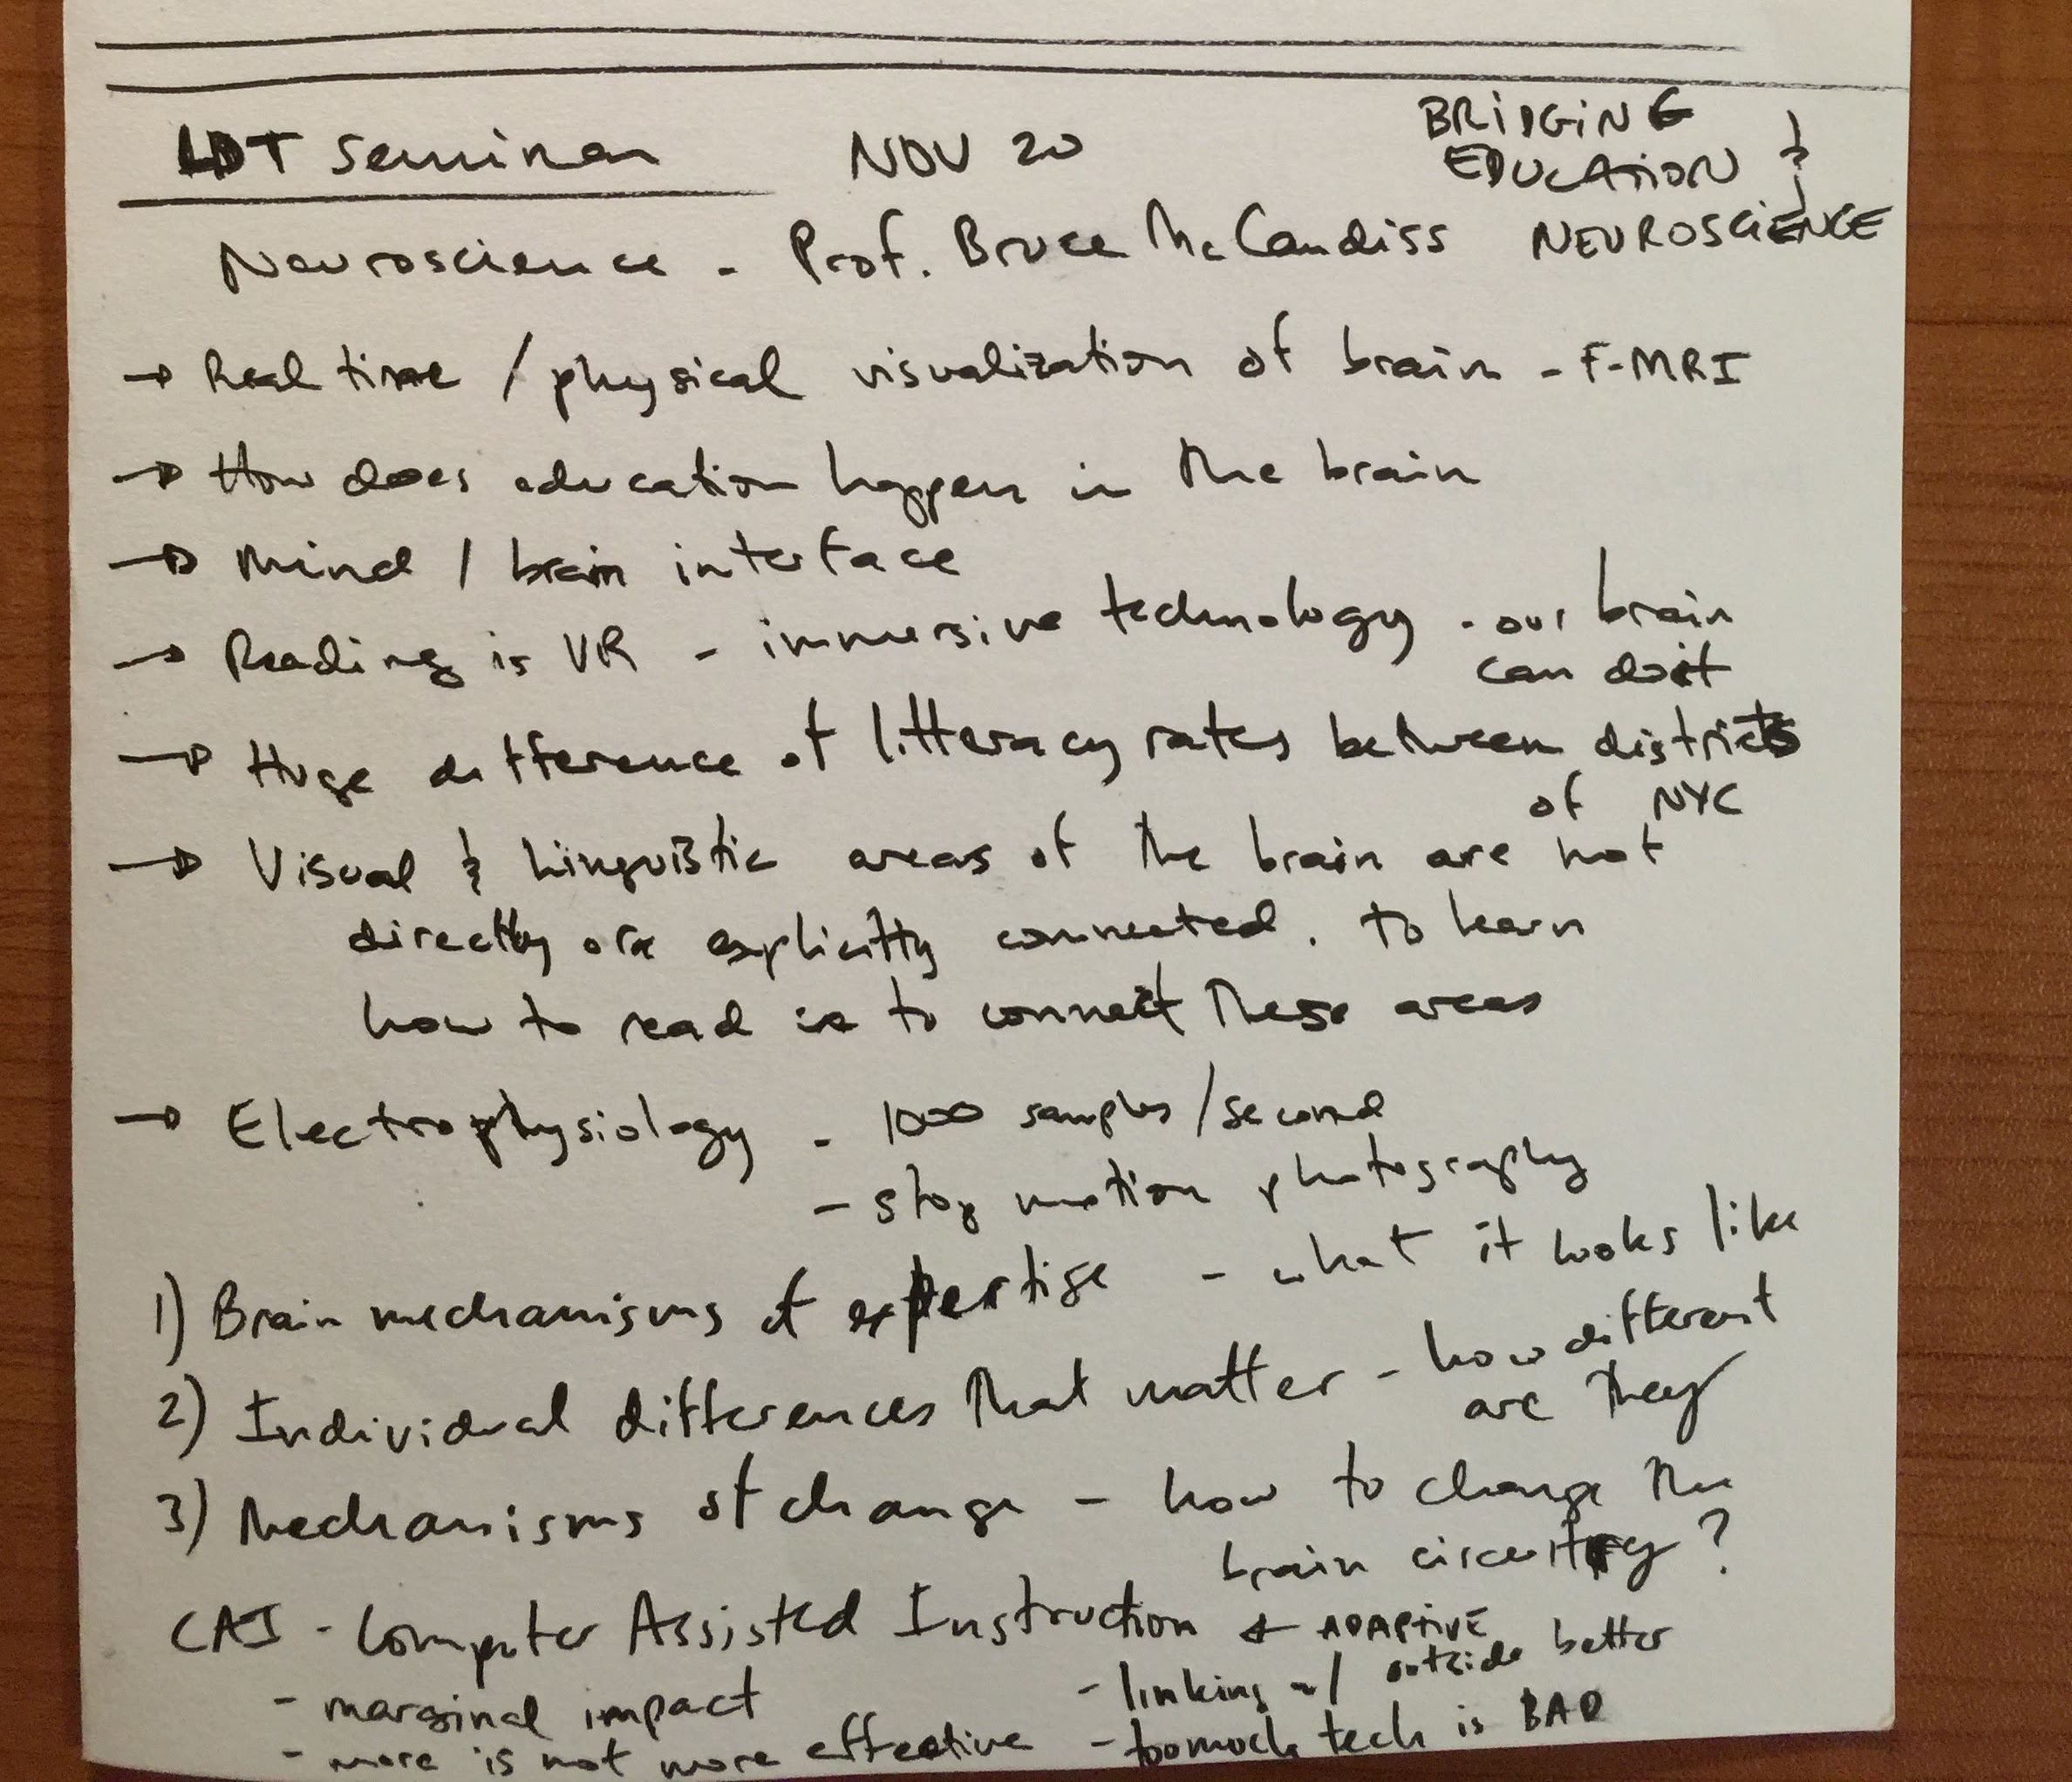 LDT Seminar NOV 20 BRIDGING
EDUCATION &
Neuroscience - Prof. Bruce McCandiss NEUROSCIENCE
→ Real time / physical visualization of brain - F-MRI
→ How does education happen in the brain
→ Mind / brain interface
→ Reading is VR - immersive technology - our brain
can do it
→ Huge difference of litteracy rates between districts
of NYC
→ Visual & Linguistic areas of the brain are not
directly or explicitly connected. To learn
how to read is to connect these areas
→ Electrophysiology - 1000 samples/second
- stop motion photography
1) Brain mechanisms of expertise - what it looks like
2) Individual differences that matter - how different
are they
3) Mechanisms of change - how to change the
brain circuitry?
CAI - Computer Assisted Instruction & ADAPTIVE
- marginal impact - linking w/ outside better
- more is not more effective - too much tech is BAD